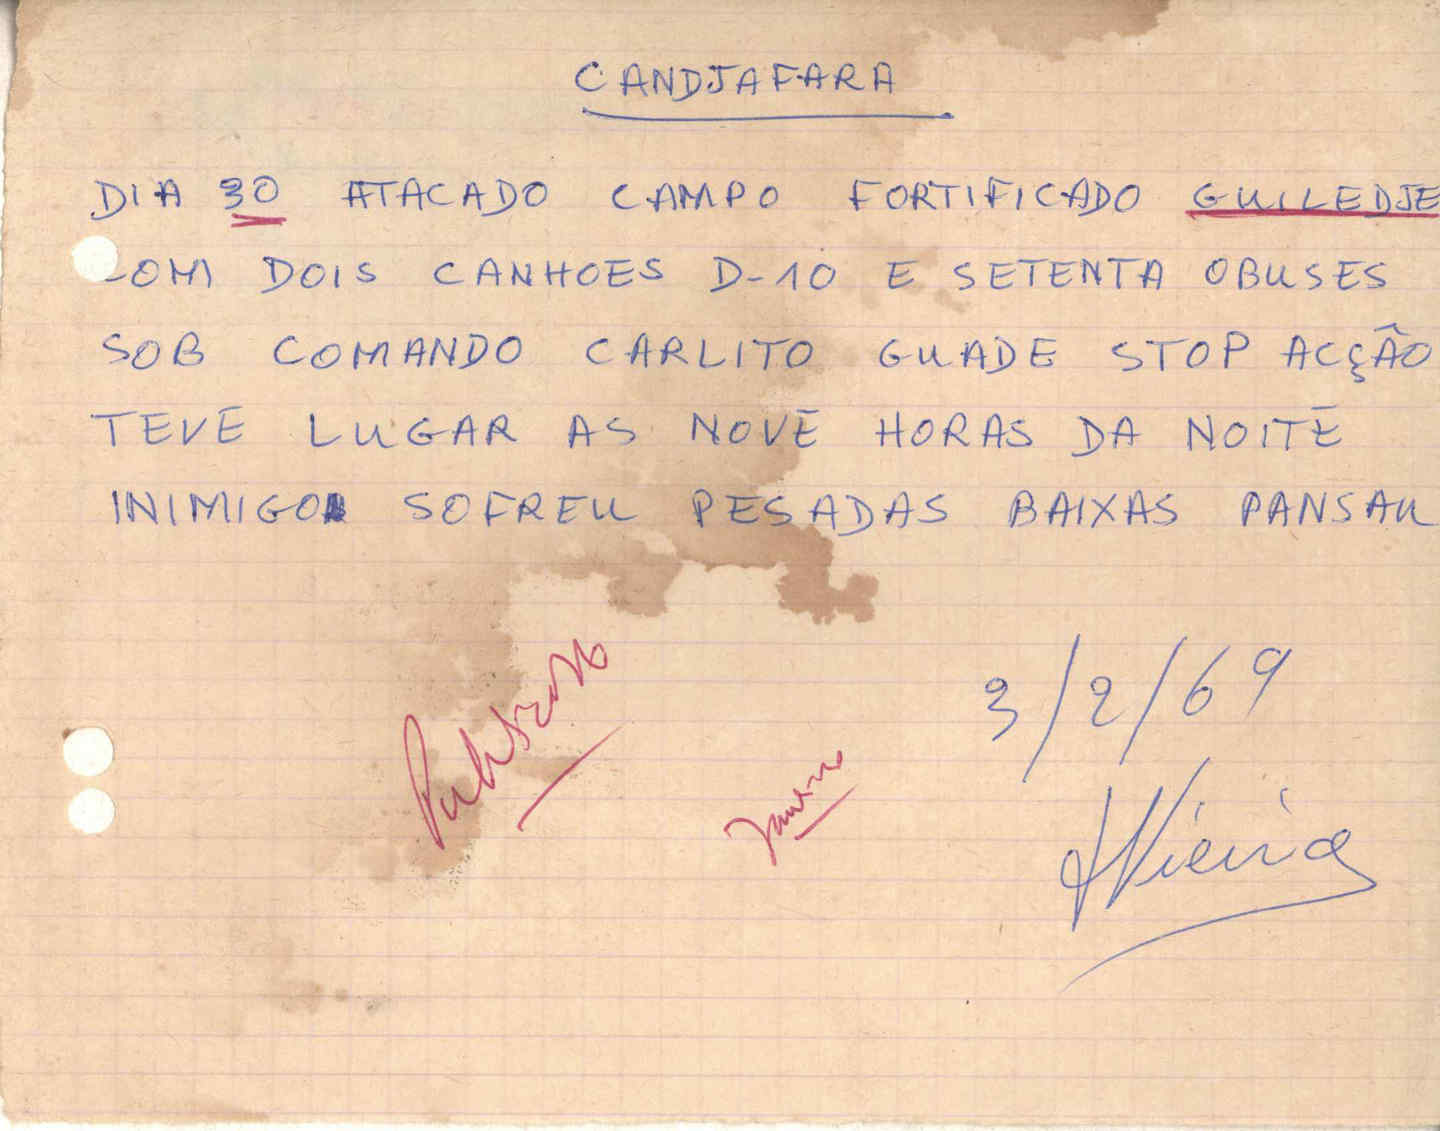 CANDJAFARA
DIA 30 ATACADO CAMPO FORTIFICADO GUILEDJE
COM DOIS CANHOES D-10 E SETENTA OBUSES
SOB COMANDO CARLITO GUADE STOP ACÇÃO
TEVE LUGAR AS NOVE HORAS DA NOITE
INIMIGO SOFREU PESADAS BAIXAS PANSAU
3/2/69
Vieira